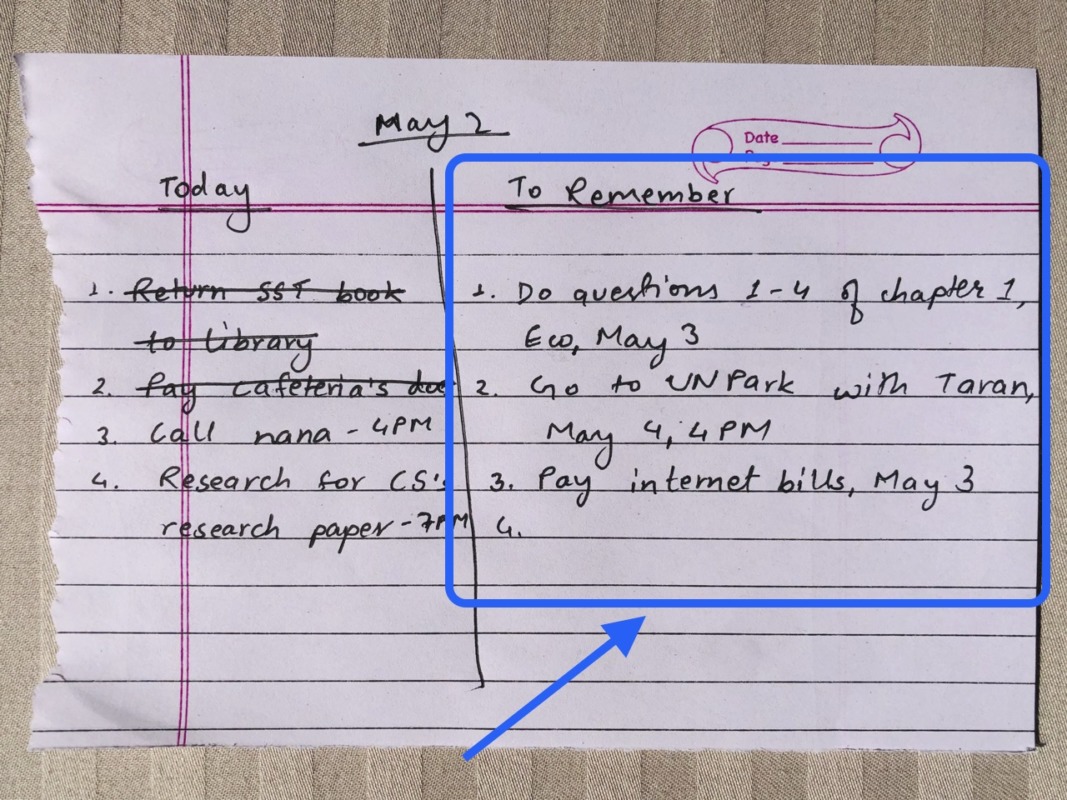 May 2
Date
Today
1. Return SST book
to Library
2. Pay cafeteria's
3. Call nana - 4PM
4. Research for CS's
research paper - 7PM
To Remember
1. Do questions 1-4 of chapter 1,
Eco, May 3
2. Go to UN Park with Taran,
May 4, 4 PM
3. Pay internet bills, May 3
4.